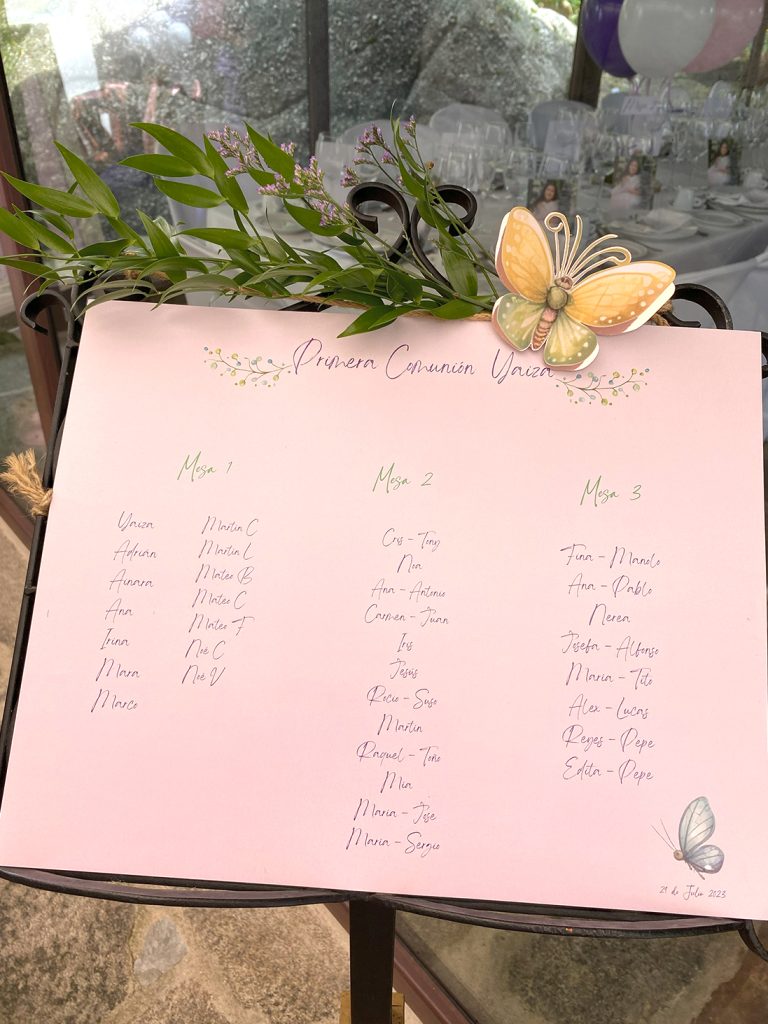 Primera Comunión Yaiza
Mesa 1
Yaiza
Adrián
Ainara
Ana
Irina
Mara
Marco
Martín C
Martín L
Mateo B
Mateo C
Mateo F
Noé C
Noé V
Mesa 2
Cris - Tony
Noa
Ana - Antonio
Carmen - Juan
Iris
Jesús
Rocío - Suso
Martín
Raquel - Toño
Mía
María - Jose
María - Sergio
Mesa 3
Fina - Manolo
Ana - Pablo
Nerea
Josefa - Alfonso
María - Tito
Alex - Lucas
Reyes - Pepe
Edita - Pepe
de Julio 2023